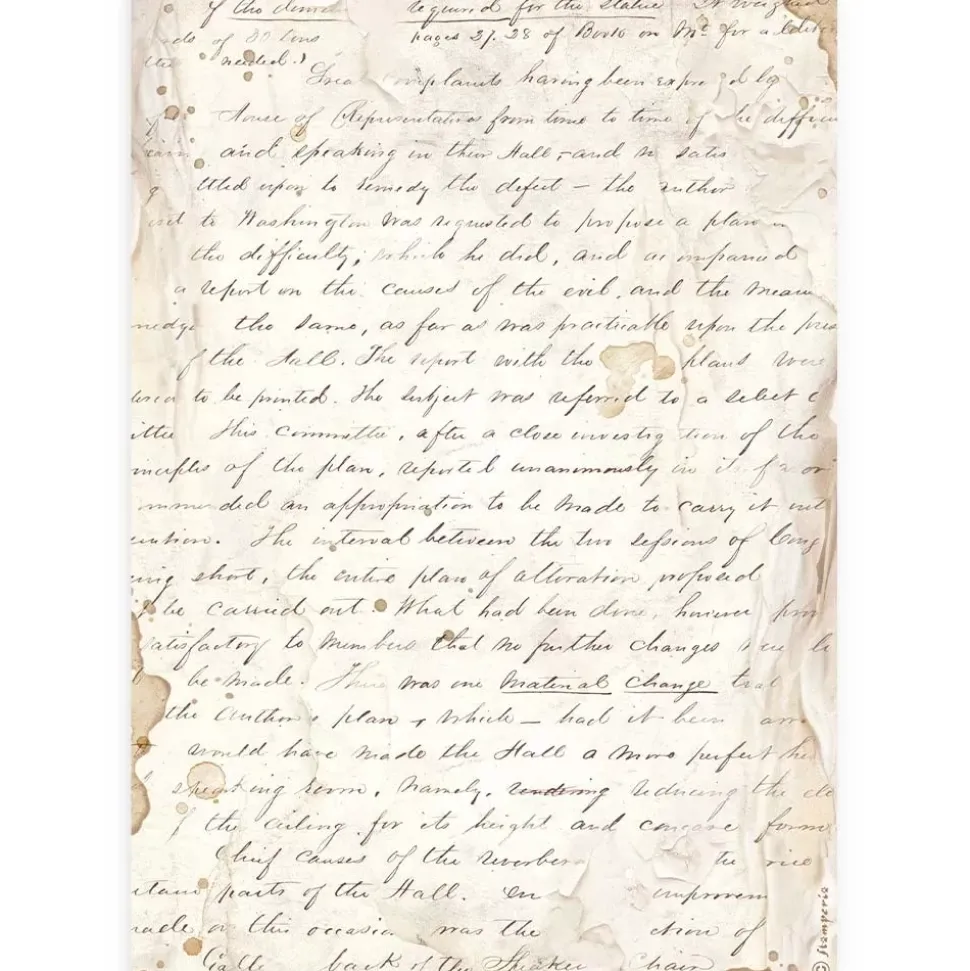 of the dome required for the statue It weighed
nds of 80 tons pages 27. 28 of Book on Mc. for
needed.)
Great complaints having been expressed by
House of Representatives from time to time of the difficu
and speaking in their Hall, and
ttled upon to remedy the defect – the author
to Washington was requested to propose a plan
the difficulty; which he did, and accompanied
a report on the causes of the evil, and the mean
the same, as far as was practicable upon the pres
f the Hall. The report with the plans were
to be printed. The subject was referred to a select c
ittee This committee, after a close investig tion of the
inciples of the plan, reported unanimously in its favor
mmended an appropriation to be made to carry it int
The interval between the two sessions of Cong
ing short, the entire plan of alteration proposed
be carried out. What had been done, however prov
satisfactory to members that no further changes were
be made. There was one material change
the author's plan & which – had it been
would have made the Hall a more perfect
speaking room, namely, rendering reducing the
f the ceiling, for its height and concave form
Chief causes of the reverbera
parts of the Hall. improvem
made on this occasion was the ction of
back of the Speaker Chair
© stamperia